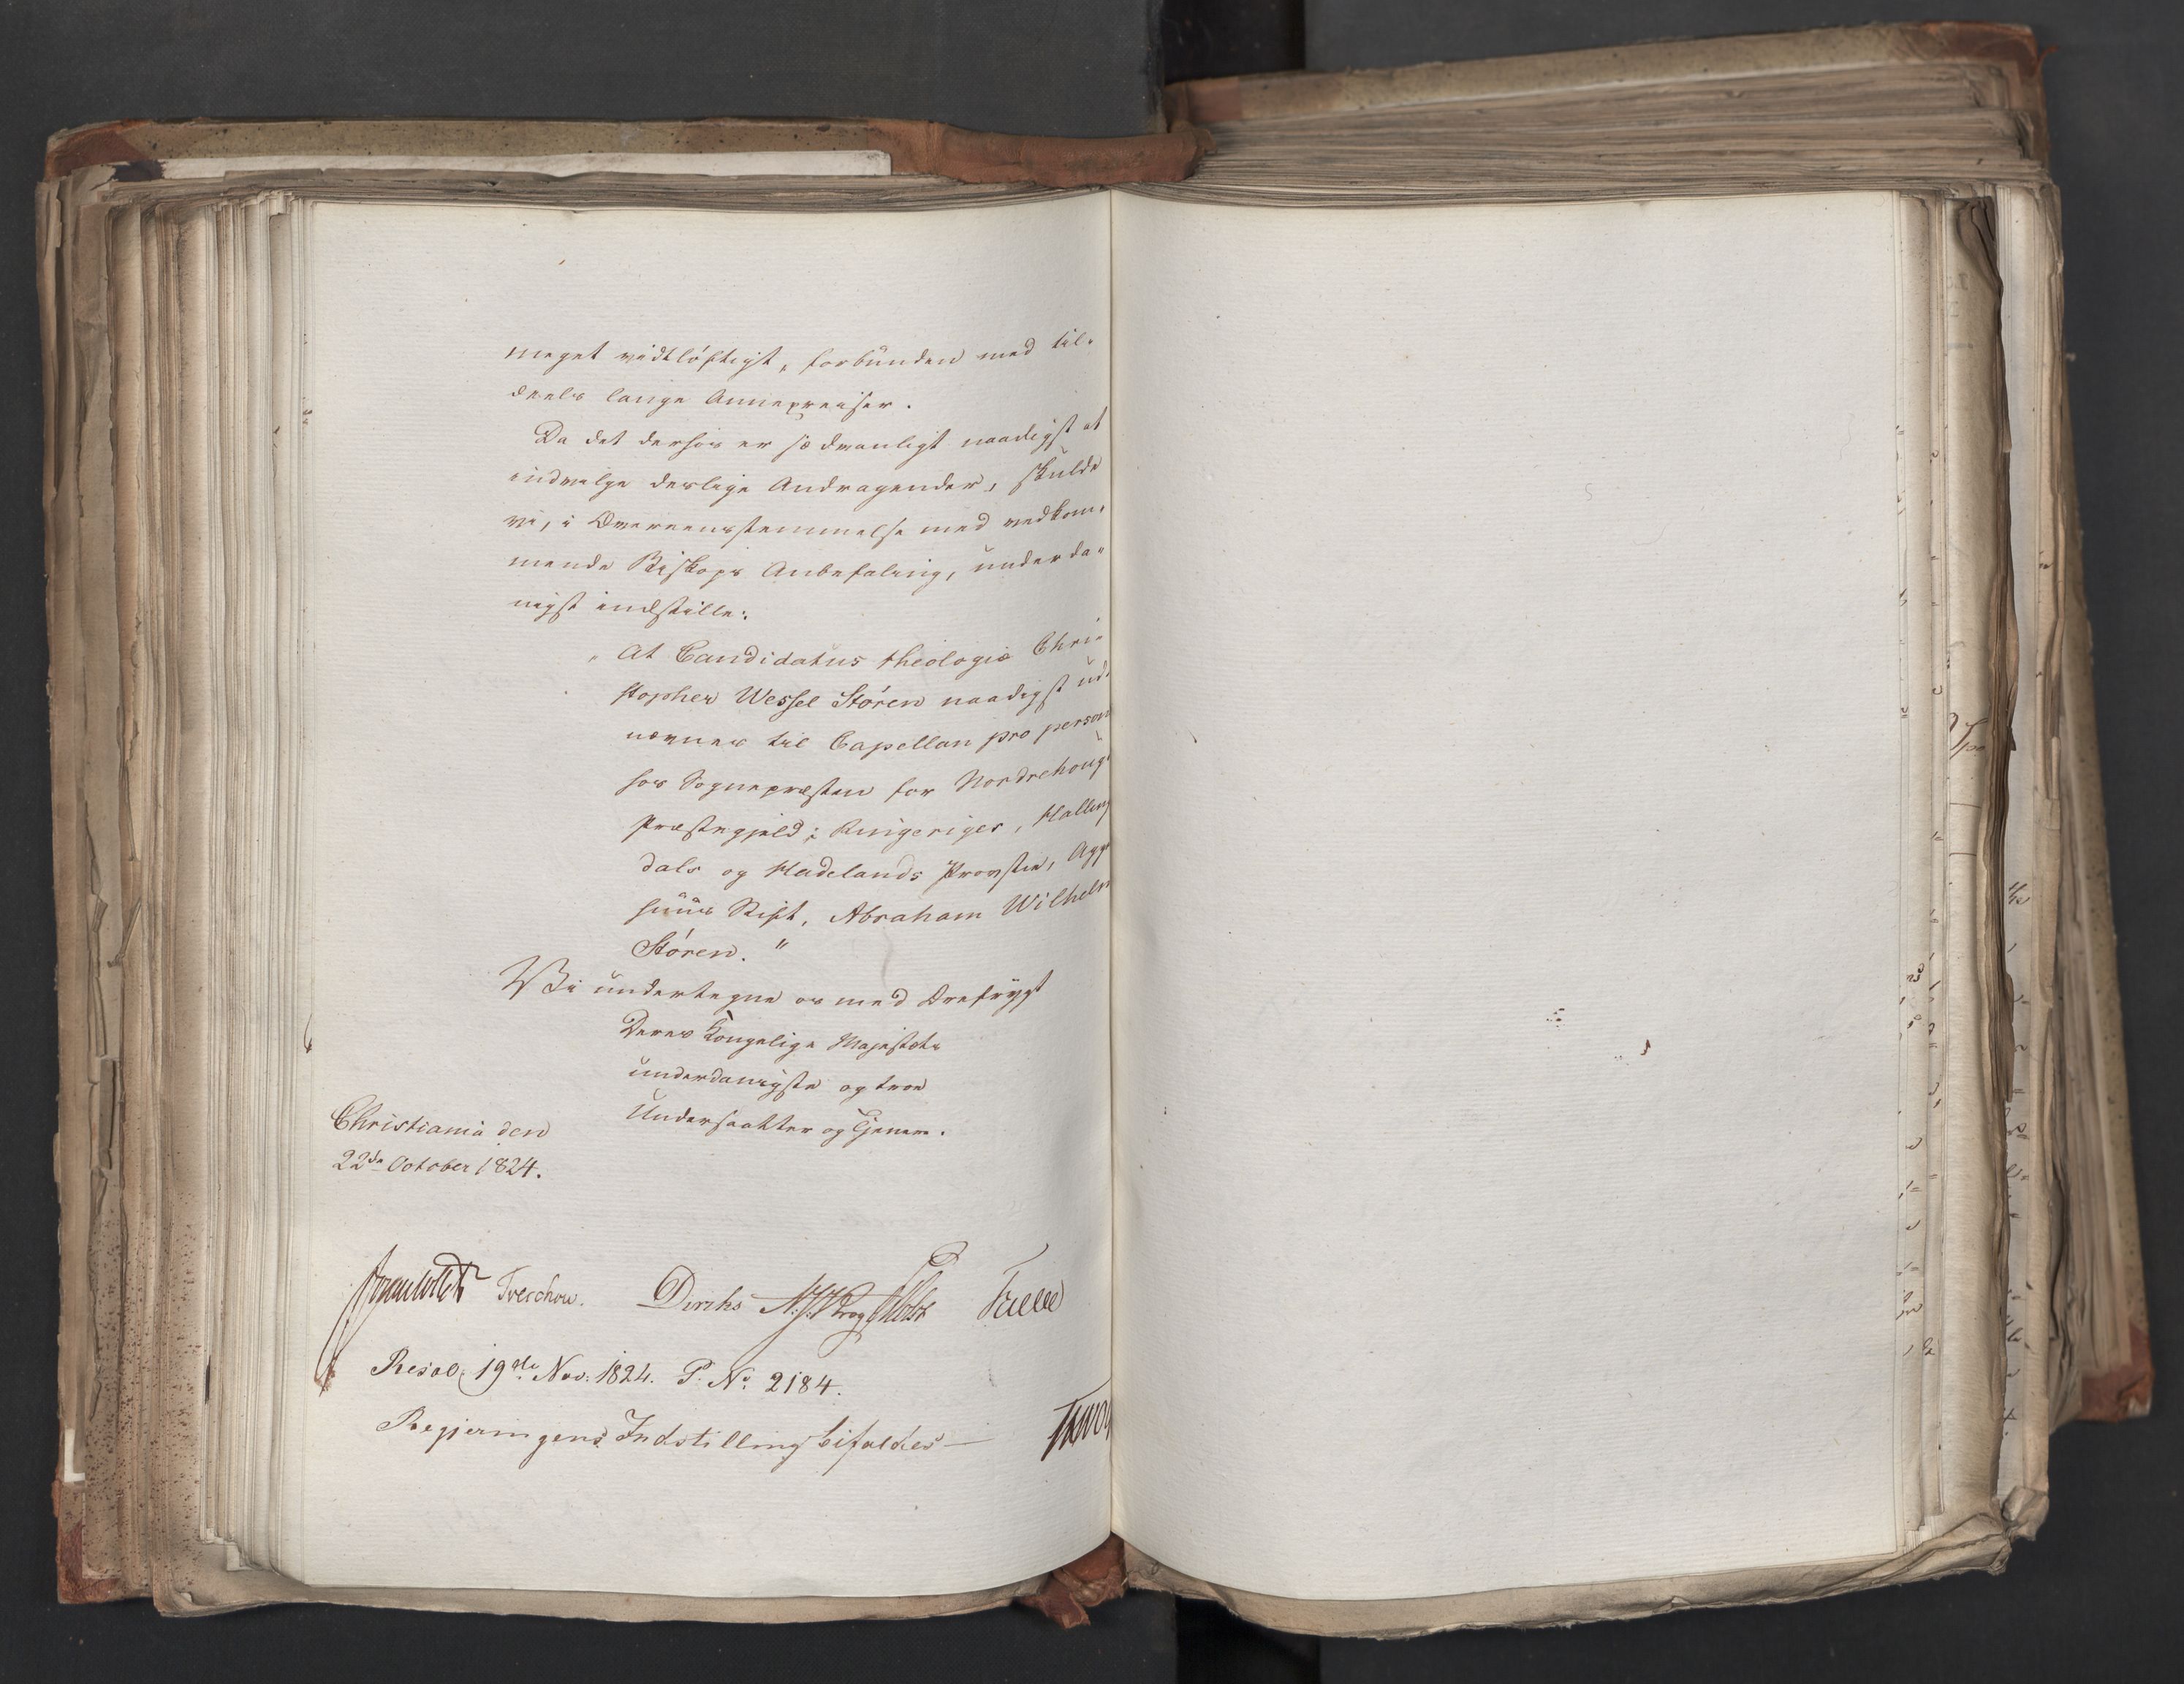 meget vidtløftigt, forbunden med til-
deels lange Annexreiser.
Da det derhos er sædvanligt naadigst at
indvilge deslige Andragender, skulde
vi, i Overeensstemmelse med vedkom-
mende Biskops Anbefaling, underda-
nigst indstille:
"At Candidatus theologiæ Chri-
stopher Wessel Støren naadigst ud-
nævnes til Capellan pro person
hos Sognepræsten for Nordrehoug
Præstegjeld i Ringeriges, Halling
dals og Hadelands Provstie, Agg
huus Stift, Abraham Wilhelm
Støren."
Vi undertegne os med Ærefrygt
Deres Kongelige Majestæts
underdanigste og troe
Undersaatter og Tjenere.
Christiania den
22de October 1824.
Treschow. Diriks N. J. Krog
Resol. 19de Nov. 1824. P. No. 2184.
Regjeringens Indstilling bifaldes—